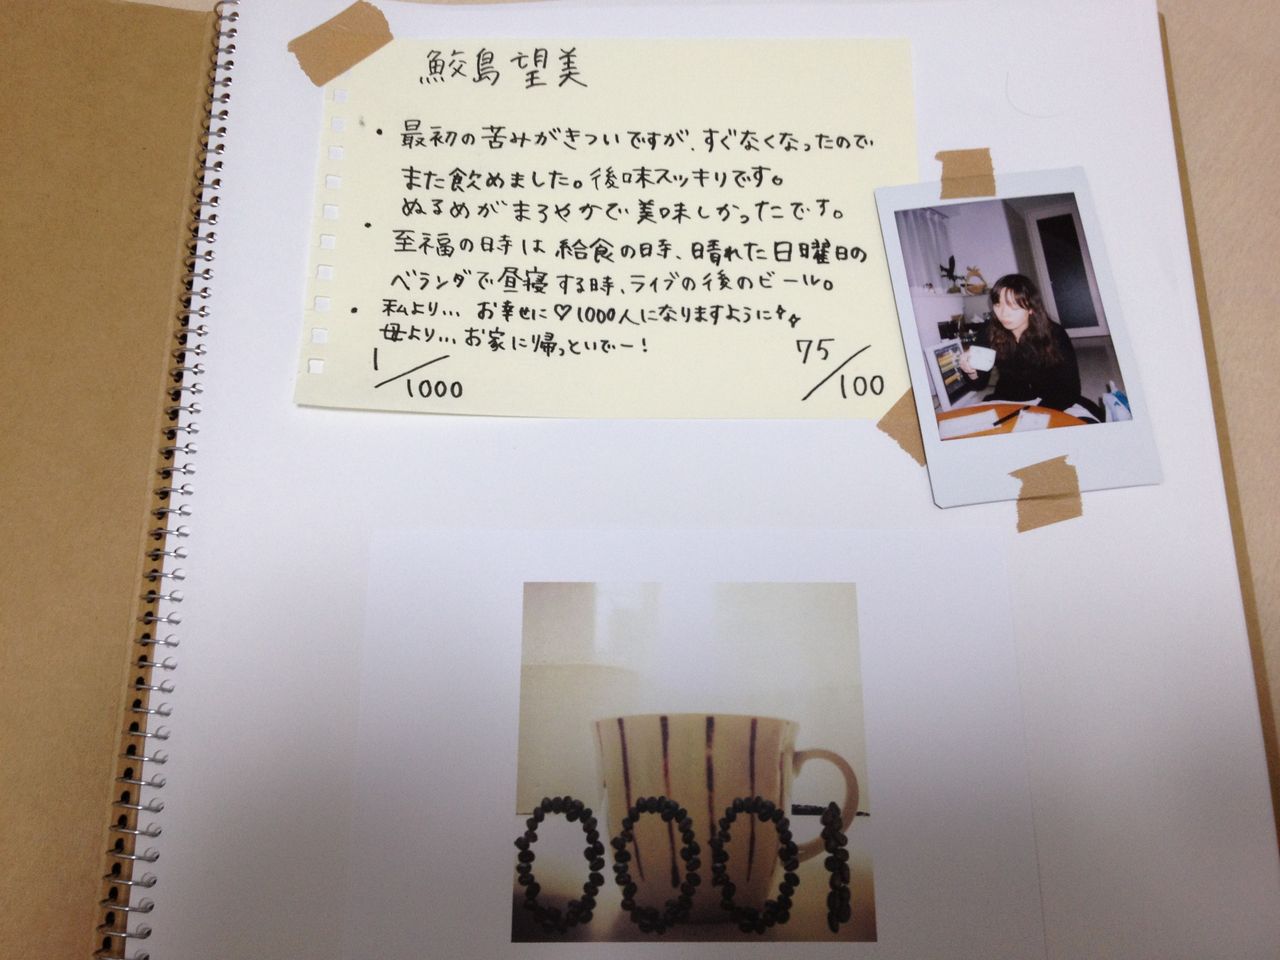 鮫島望美
・最初の苦みがきついですが、すぐなくなったので
また飲めました。後味スッキリです。
ぬるめがまろやかで美味しかったです。
・至福の時は給食の時、晴れた日曜日の
ベランダで昼寝する時、ライブの後のビール。
・私より… お幸せに♡1000人になりますように
母より… お家に帰っといでー!
1/1000
75/100
0001